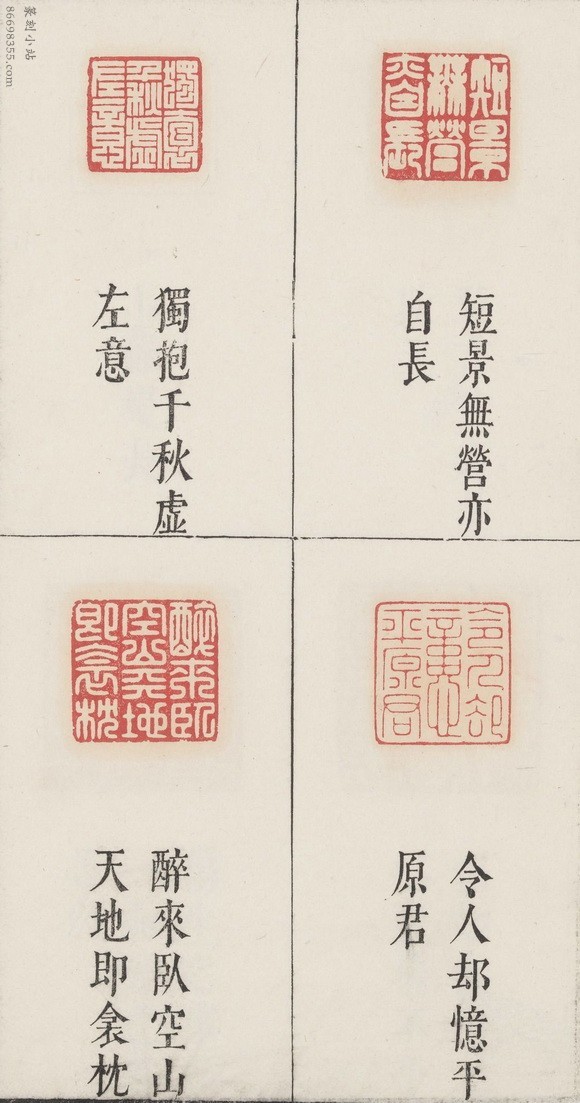 短景無營亦
自長
獨抱千秋虛
左意
令人却憶平
原君
醉來臥空山
天地即衾枕
篆刻小站
86698355.com